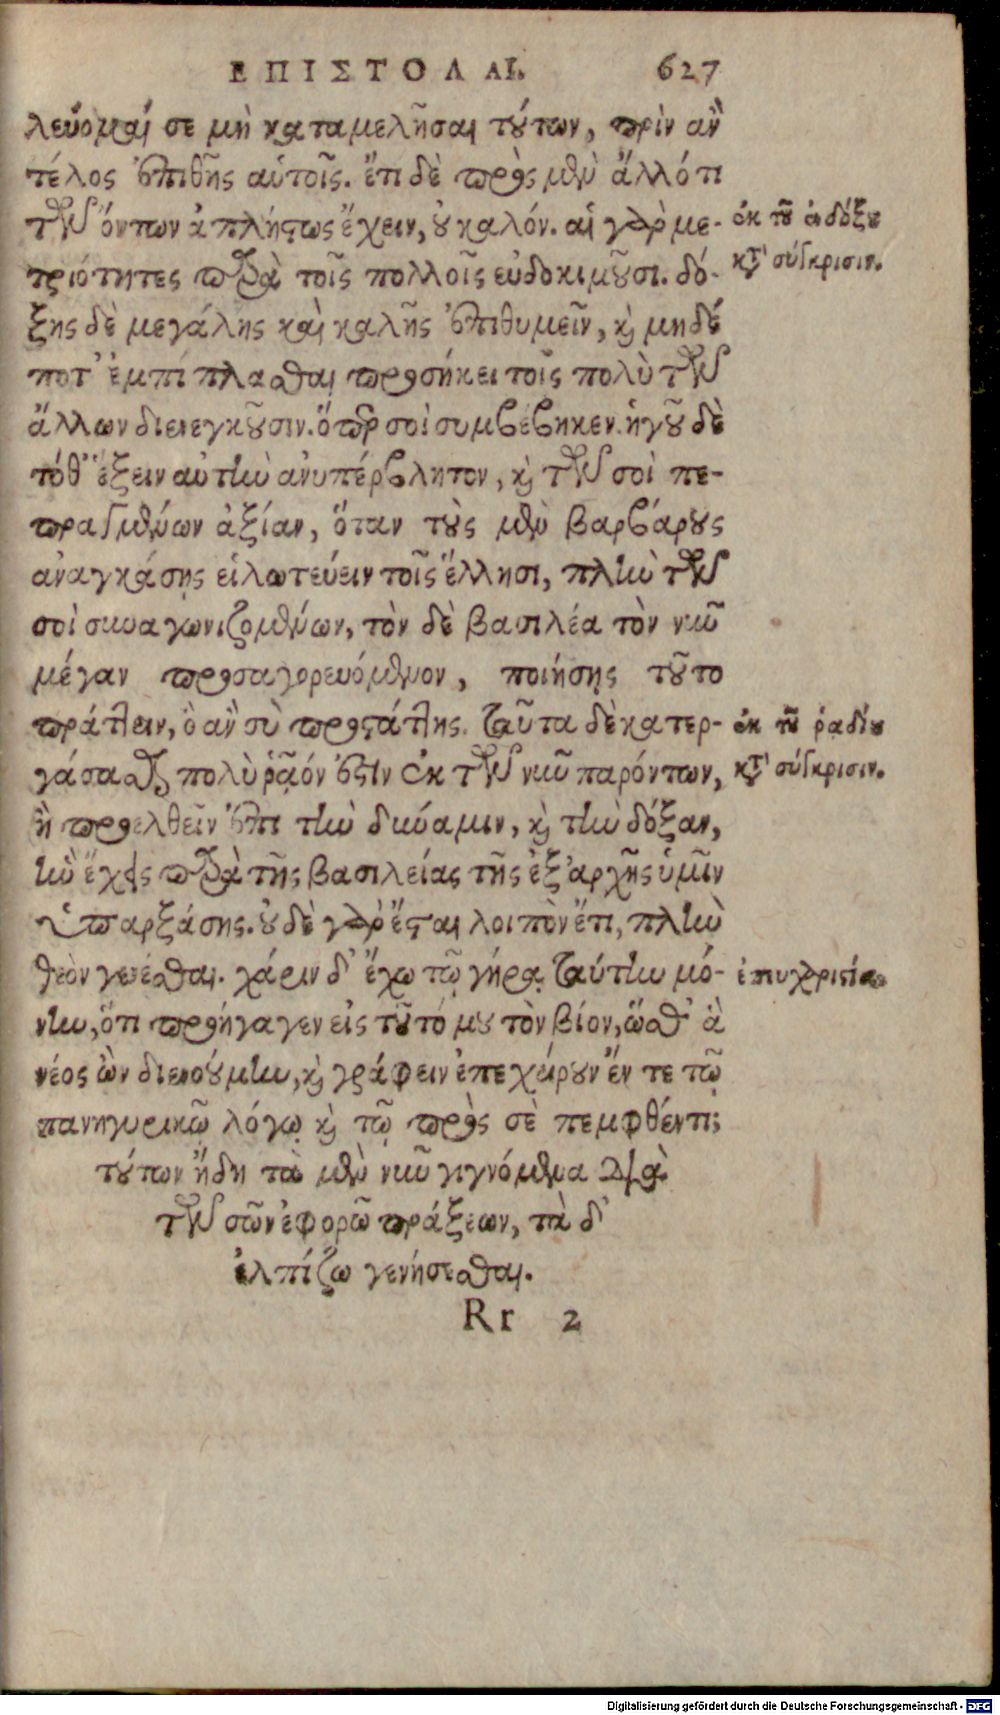 ΕΠΙΣΤΟΛΑΙ. 627
λεύομαί σε μὴ καταμελῆσαι τούτων, πρὶν ἂν
τέλος ἐπιθῇς αὐτοῖς. ἔτι δὲ πρὸς μὲν ἄλλό τι
τῶν ὄντων ἀπλήστως ἔχειν, οὐ καλόν. αἱ γὰρ με-
τριότητες παρὰ τοῖς πολλοῖς εὐδοκιμοῦσι. δό-
ξης δὲ μεγάλης καὶ καλῆς ἐπιθυμεῖν, καὶ μηδέ
ποτ' ἐμπίπλασθαι προσήκει τοῖς πολὺ τῶν
ἄλλων διενεγκοῦσιν. ὅπερ σοὶ συμβέβηκεν. ἡγοῦ δὲ
τόθ' ἕξειν αὐτὴν ἀνυπέρβλητον, καὶ τῶν σοὶ πε-
πραγμένων ἀξίαν, ὅταν τοὺς μὲν βαρβάρους
ἀναγκάσῃς εἱλωτεύειν τοῖς ἕλλησι, πλὴν τῶν
σοὶ συναγωνιζομένων, τὸν δὲ βασιλέα τὸν νῦν
μέγαν προσαγορευόμενον, ποιήσῃς τοῦτο
πράττειν, ὃ ἂν σὺ προστάττῃς. ταῦτα δὲ κατερ-
γάσασθαι πολὺ ῥᾷόν ἐστιν ἐκ τῶν νῦν παρόντων,
ἢ προελθεῖν ἐπὶ τὴν δύναμιν, καὶ τὴν δόξαν,
ἣν ἔχεις παρὰ τῆς βασιλείας τῆς ἐξ ἀρχῆς ὑμῖν
ὑπαρξάσης. οὐδὲ γὰρ ἔσται λοιπὸν ἔτι, πλὴν
θεὸν γενέσθαι. χάριν δ' ἔχω τῷ γήρᾳ ταύτην μό-
νην, ὅτι προήγαγεν εἰς τοῦτό μου τὸν βίον, ὥσθ' ἃ
νέος ὢν διενοούμην, καὶ γράφειν ἐπεχείρουν ἔν τε τῷ
πανηγυρικῷ λόγῳ καὶ τῷ πρὸς σὲ πεμφθέντι;
τούτων ἤδη τὰ μὲν νῦν γιγνόμενα διὰ
τῶν σῶν ἐφορῶ πράξεων, τὰ δ'
ἐλπίζω γενήσεσθαι.
Rr 2
ἐκ τοῦ ἐνδόξου
κατὰ σύγκρισιν.
ἐκ τοῦ ῥαδίου
κατὰ σύγκρισιν.
Digitalisierung gefördert durch die Deutsche Forschungsgemeinschaft - DFG